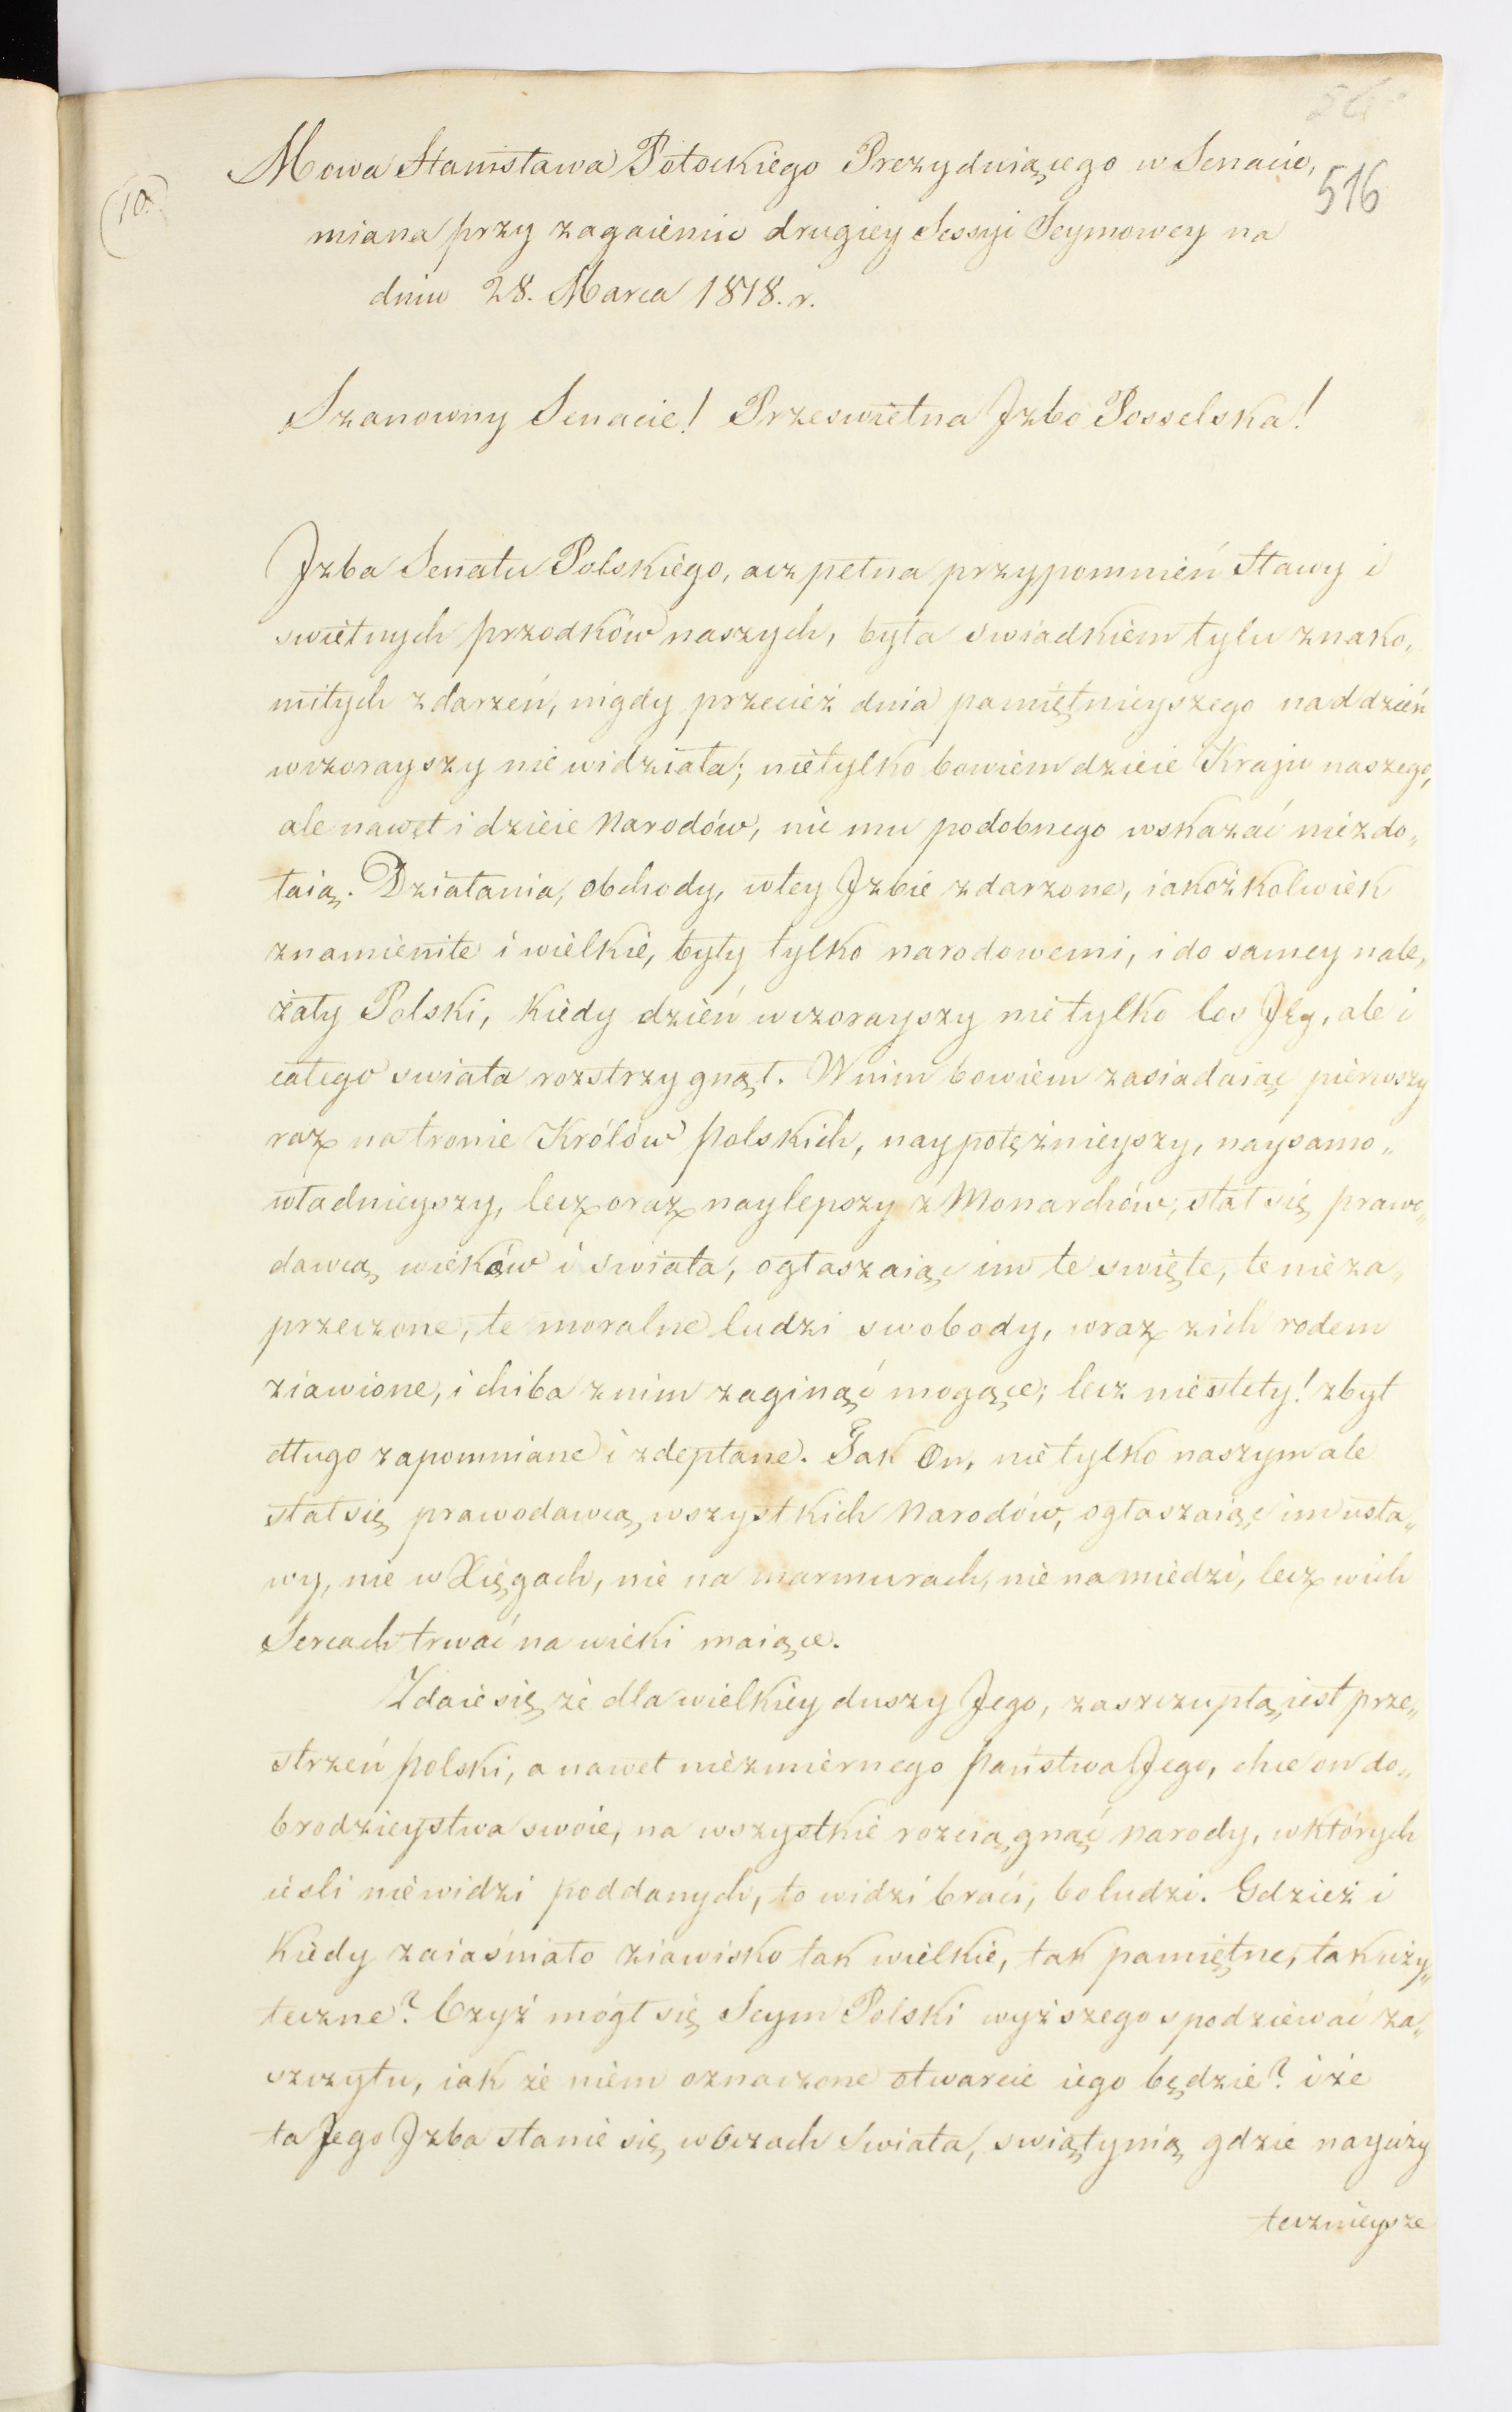 Mowa Stanisława Potockiego Prezyduiącego w Senacie,
516
(10.)
miana przy zagaieniu drugiey Sessyi Seymowey na
dniu 28. Marca 1818. r.
Szanowny Senacie! Przeswietna Jzbo Posselska!
Jzba Senatu Polskiego, acz pełna przypomnień Sławy i
swietnych przodków naszych, była swiadkiem tylu znako„
mitych zdarzeń, nigdy przecież dnia pamiętnieyszego nad dzień
wczorayszy nie widziała; nietylko bowiem dzieie Kraju naszego,
ale nawet i dzieie Narodów, nic mu podobnego wskazać niezdo„
łaią. Działania, obchody, w tey Jzbie zdarzone, iakożkolwiek
znamienite i wielkie, były tylko narodowemi, i do samey nale„
żały Polski, kiedy dzień wczorayszy nie tylko los Jey, ale i
całego swiata rozstrzygnął. W nim bowiem zasiadaiąc pierwszy
raz na tronie Królów polskich, naypotężnieyszy, naysamo„
władnieyszy, lecz oraz naylepszy z Monarchów, stał się prawo„
dawcą wieków i swiata, ogłaszaiąc im te swięte, te nieza„
przeczone, te moralne ludzi swobody, wraz z ich rodem
ziawione, i chiba z nim zaginąć mogące; lecz niestety! zbyt
długo zapomniane i zdeptane. Tak On, nie tylko naszym ale
stał się prawodawcą wszystkich Narodów, ogłaszaiąc im usta„
wy, nie w Xięgach, nie na marmurach, nie na miedzi, lecz w ich
Sercach trwać na wieki maiące.
Zdaie się że dla wielkiey duszy Jego, zaszczupłą iest prze„
strzeń polski, a nawet niezmiernego państwa Jego, chce on do„
brodzieystwa swoie, na wszystkie rozciągnąć narody, w których
ieśli niewidzi poddanych, to widzi braci, bo ludzi. Gdzież i
kiedy zaiaśniało ziawisko tak wielkie, tak pamiętne, tak uży„
teczne? Czyż mógł się Seym Polski wyższego spodziewać za„
szczytu, iak że niem oznaczone otwarcie iego będzie? i że
ta Jego Jzba stanie się w oczach Swiata, swiątynią gdzie nayuży
tecznieysze